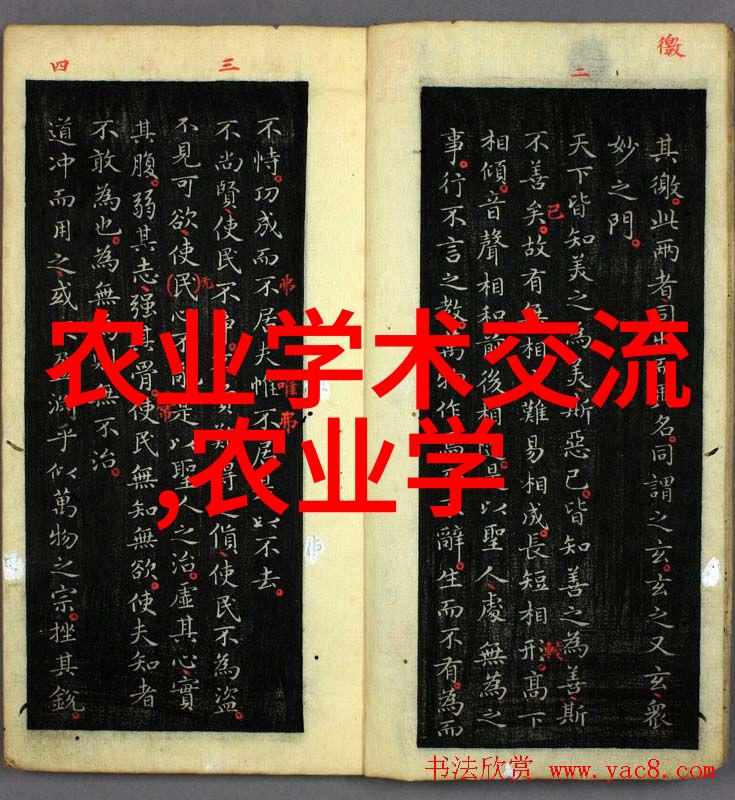 徼
二
其徼。此兩者同而名。同謂之玄。玄之又玄、眾
妙之門。
天下皆知美之為美、斯惡已。皆知善之為善斯
不善矣。已故有相難易相成。長短相形。較高下
相傾。音聲相和前後相是以聖人處無為之
事。行不言之教。萬作而辭。生而不有。為而
三
不恃。功成而不居夫惟不居以不去。
弗
唯弗
不尚賢、使民不得貨、使民不為盜。
不見可欲、使(民)心不是以聖人之治。虛其心、實
无
其腹。弱其志、强其骨。使民無知無欲。使夫知者
不敢為也。為無無不治。
四
道冲而用之、或盈淵乎似萬物之宗。挫其銳。
农业学术交流
,农业学
书法欣赏 www.yac8.com